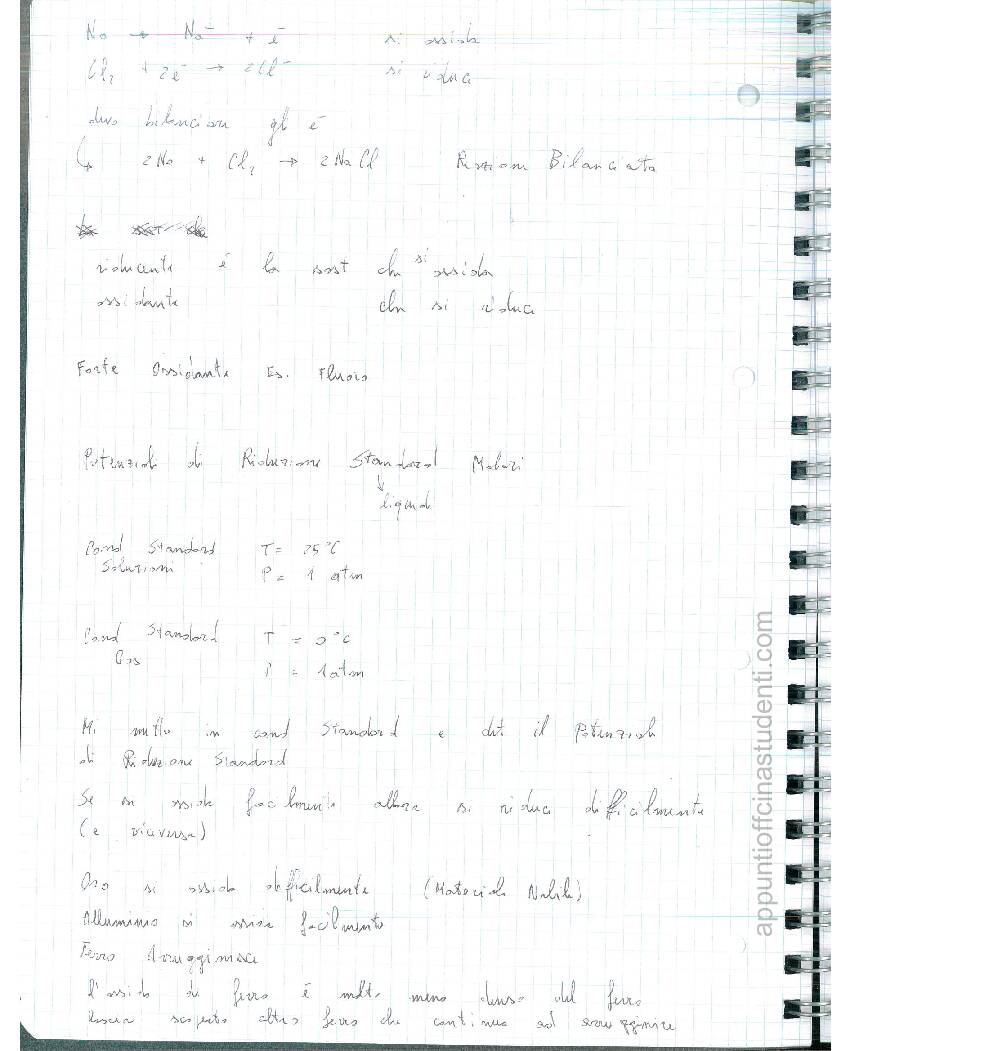 Na → Na + e⁻ si ossida
Cl₂ + 2e⁻ → 2Cl⁻ si riduce
devo bilanciare gli e⁻
↳ 2Na + Cl₂ → 2NaCl Reazione Bilanciata
riducente è la sost che si ossida
ossidante che si riduce
Forte Ossidante Es. Fluoro
Potenziali di Riduzione Standard
↓
Cond Standard T = 25 °C
Soluzioni P = 1 atm
Cond Standard T = 0 °C
Gas P = 1 atm
Mi metto in cond Standard e det il Potenziale
di Riduzione Standard
Se si ossida facilmente allora si riduce difficilmente
(e viceversa)
Oro si ossida difficilmente (Materiale Nobile)
Alluminio si ossida facilmente
Ferro Arrugginisce
L'ossido di ferro è molto meno denso del ferro
lascia scoperto altro ferro che continua ad arrugginire
appuntioffcinastudenti.com